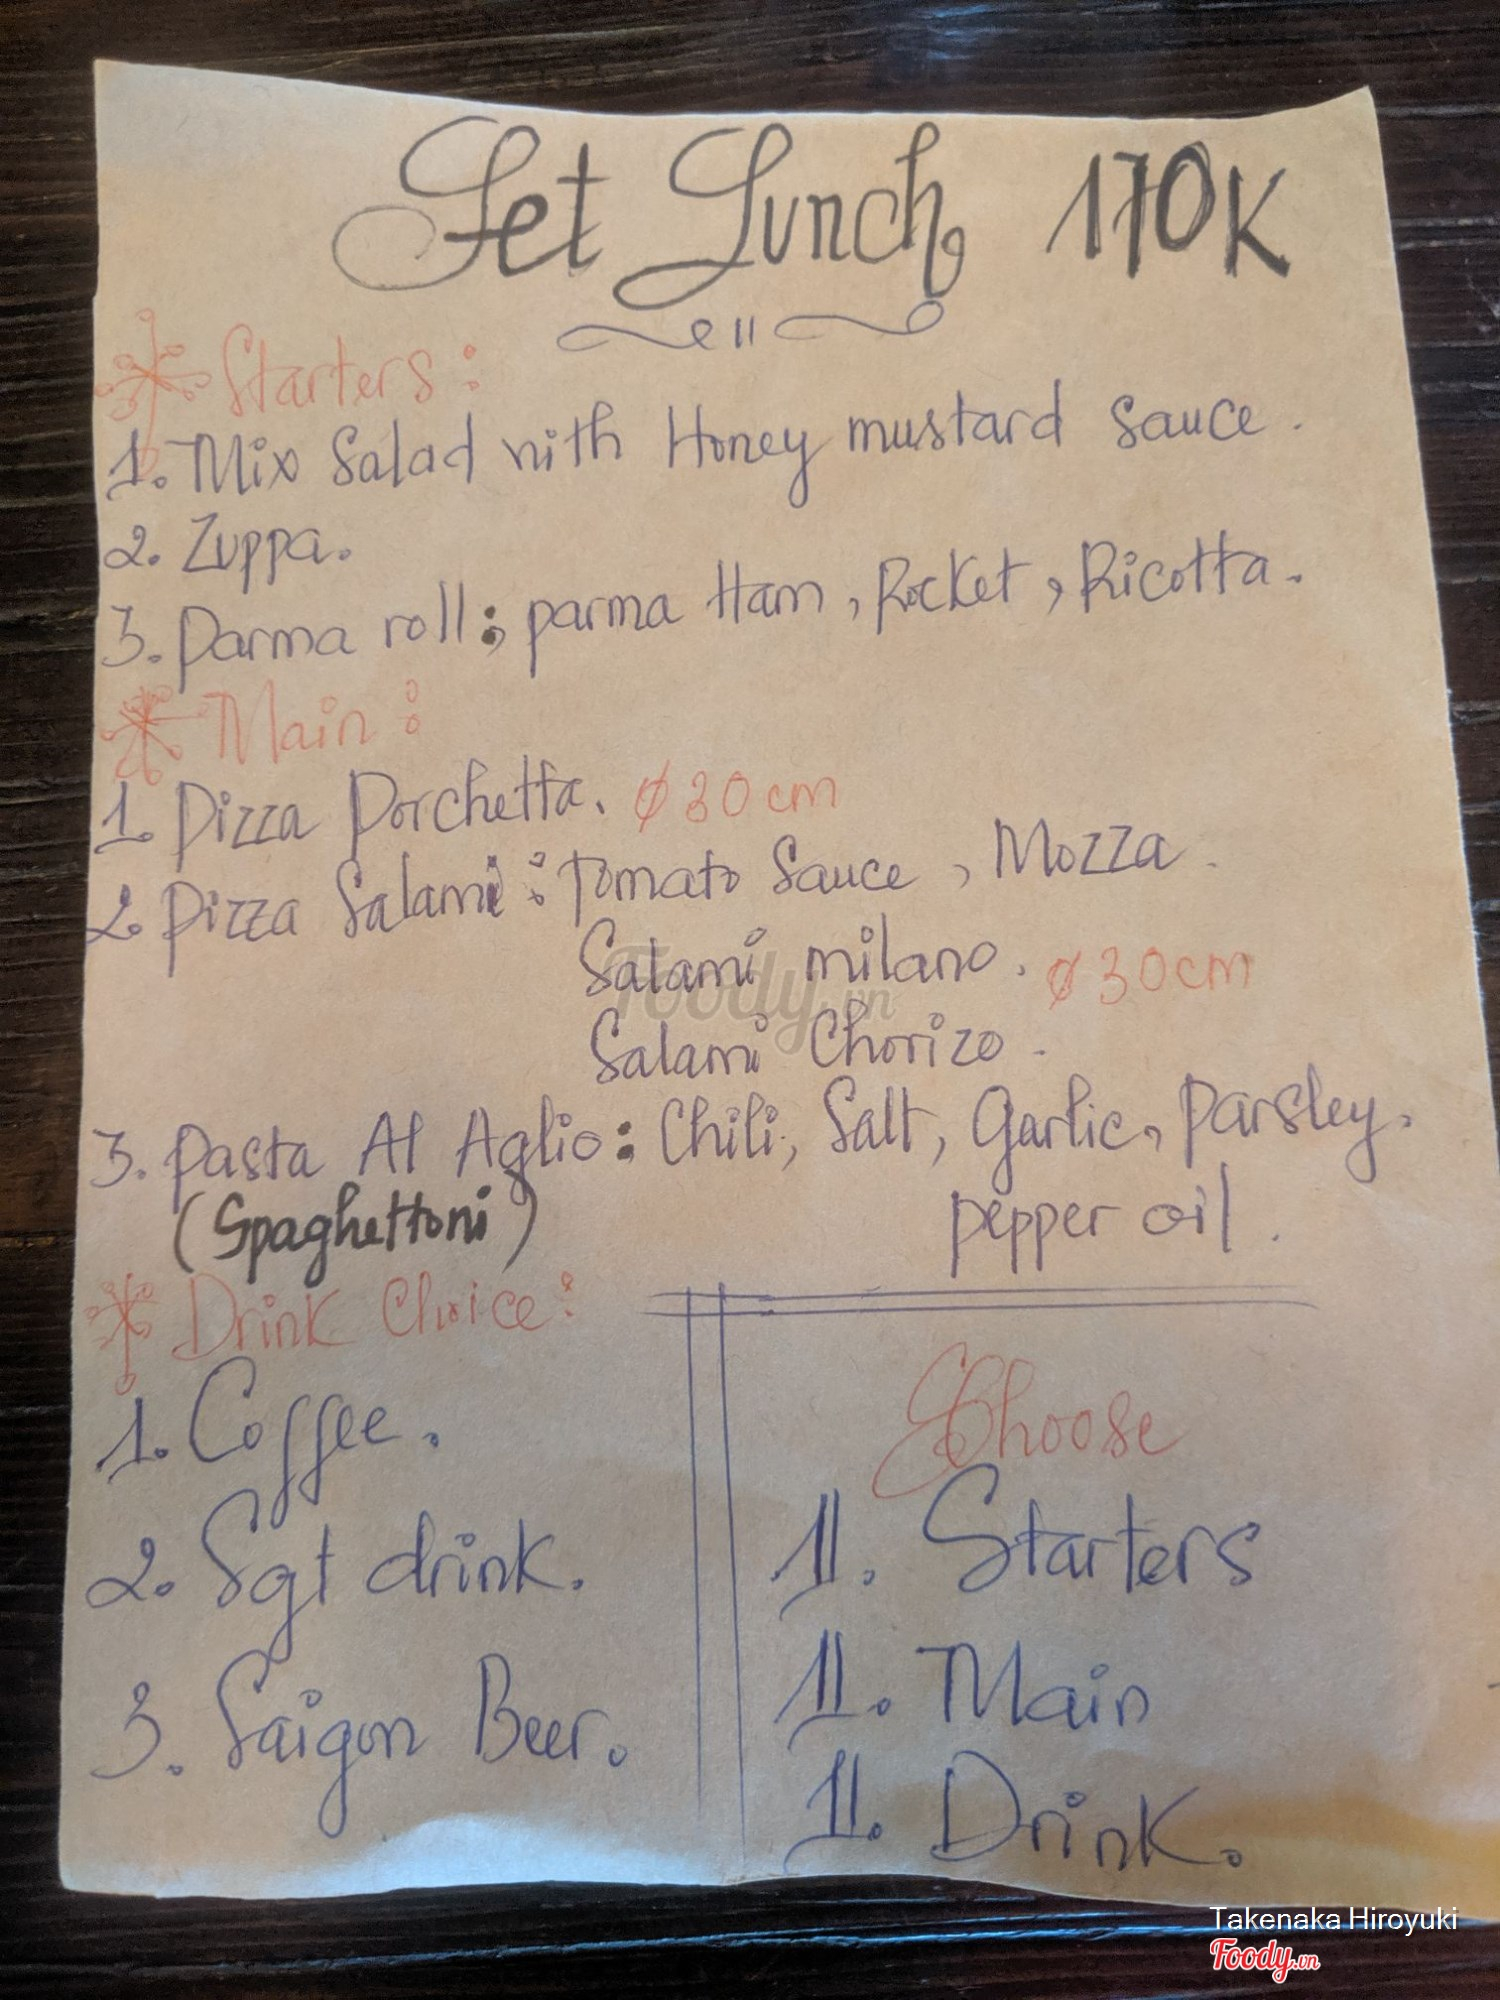 Set Lunch 170K
Starters:
1. Mix Salad with Honey mustard sauce.
2. Zuppa.
3. Parma roll: parma Ham, Rocket, Ricotta.
Main:
1. Pizza Porchetta. Ø 30cm
2. Pizza Salami: Tomato Sauce, Mozza.
Salami milano. Ø 30cm
Salami Chorizo.
3. Pasta Al Aglio: Chili, Salt, Garlic, Parsley.
(Spaghettoni) pepper oil.
Drink Choice:
1. Coffee.
2. Sgt drink.
3. Saigon Beer.
Choose
1. Starters
1. Main
1. Drink.
Foody.vn
Takenaka Hiroyuki
Foody.vn